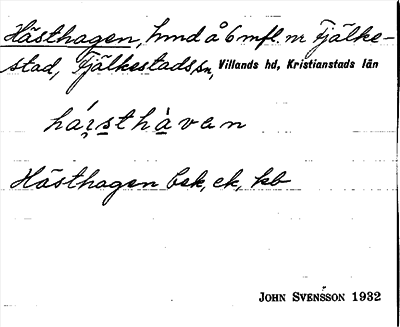 Hästhagen, hmd å 6 mfl nr Fjälke-
stad, Fjälkestads sn, Villands hd, Kristianstads län
hár̥s̥thàvan
Hästhagen bsk, ek, kb
JOHN SVENSSON 1932